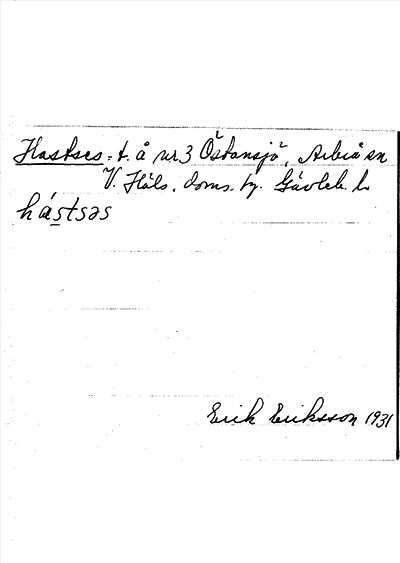 Hastses - t. å nr 3 Östansjö, Arbrå sn
V. Häls. doms. ty. Gävleb. l.
hástsəs
Erik Eriksson 1931